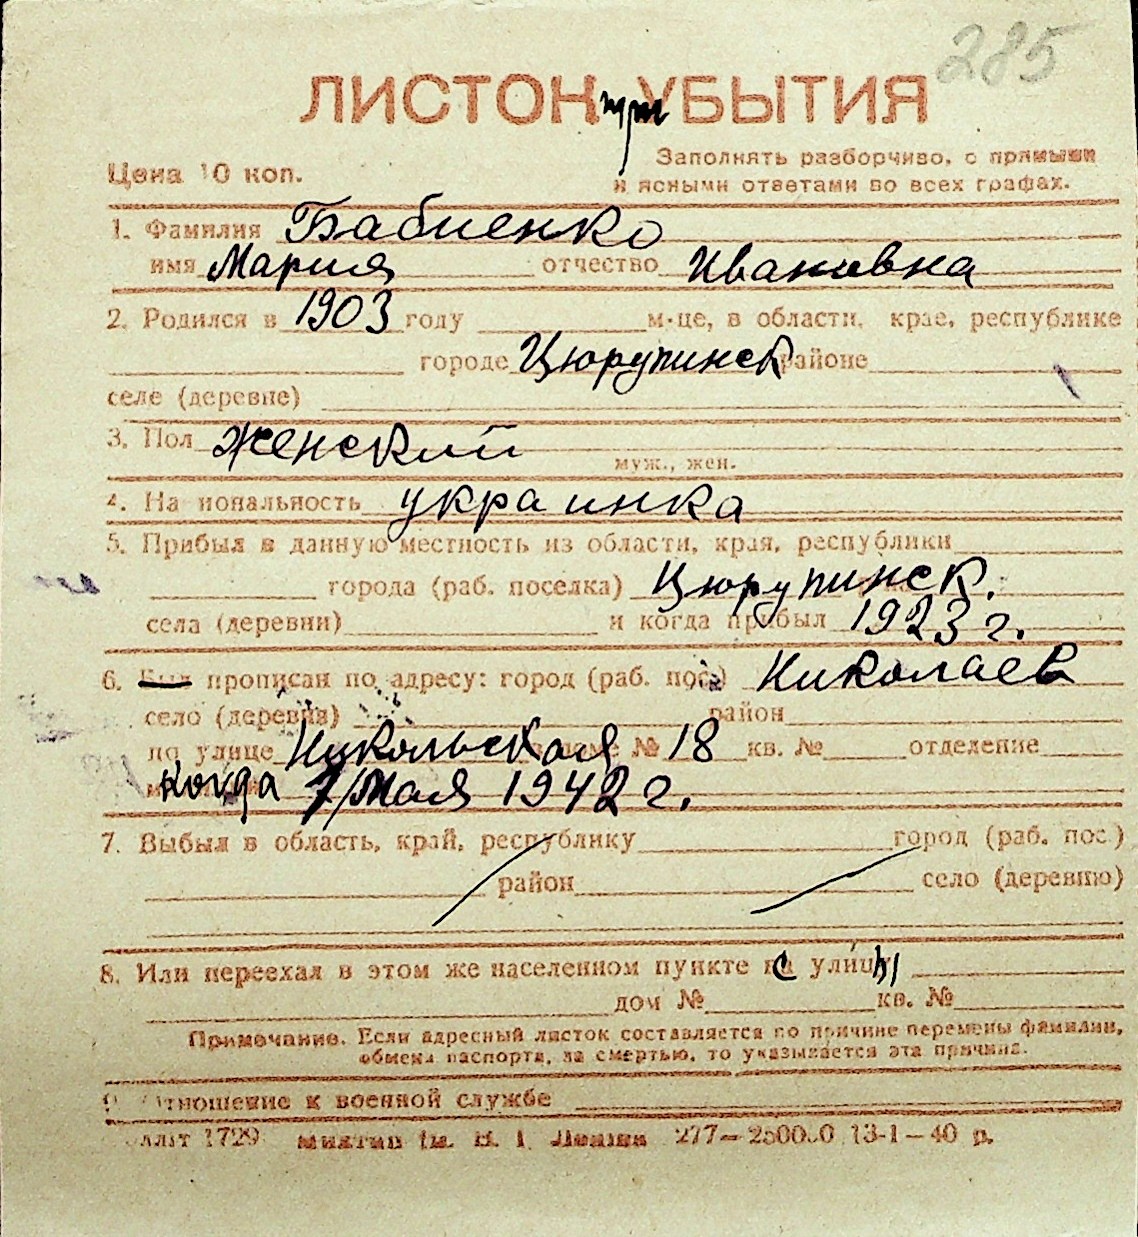 285
ЛИСТОК при УБЫТИЯ
Цена 10 коп.
Заполнять разборчиво, с прямыми
и ясными ответами во всех графах.
1. Фамилия Бабиенко
имя Мария отчество Ивановна
2. Родился в 1903 году м-це, в области, крае, республике
городе Цюрупинск районе
селе (деревне)
3. Пол женский
муж., жен.
4. Национальность украинка
5. Прибыл в данную местность из области, края, республики
города (раб. поселка) Цюрупинск.
села (деревни) и когда прибыл 1923 г.
6. Был прописан по адресу: город (раб. пос.) Николаев
село (деревня) район
по улице Никольская доме № 18 кв. № отделение
когда 7/Мая 1942 г.
7. Выбыл в область, край, республику город (раб. пос.)
район село (деревню)
8. Или переехал в этом же населенном пункте с улицы
дом № кв. №
Примечание. Если адресный листок составляется по причине перемены фамилии,
обмена паспорта, за смертью, то указывается эта причина.
9. Отношение к военной службе
1729 им. В. І. Леніна 277—250000 13-1—40 р.